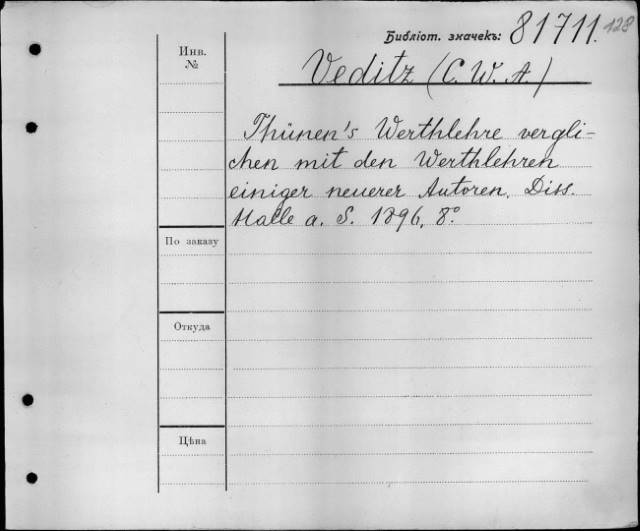 Библіот. значекъ: 81711. 128
Инв.
№
Veditz (C. W. A.)
Thünen's Werthlehre vergli-
chen mit den Werthlehren
einiger neuerer Autoren. Diss.
Halle a. S. 1896. 8°
По заказу
Откуда
Цѣна